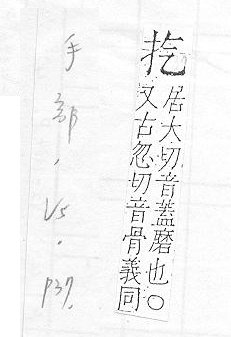 扢
居大切音蓋磨也○
又古忽切音骨義同
手部，V5．P37．